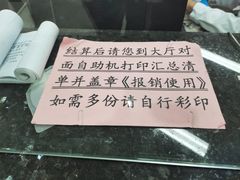 结算后请您到大厅对
面自助机打印汇总清
单并盖章《报销使用》
如需多份请自行彩印